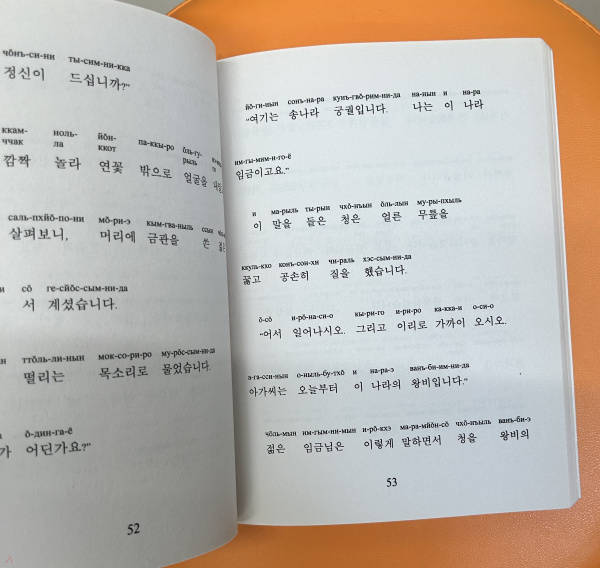 чŏнъ-си-ни ты-сим-ни-кка
정신이 드십니까?"
ккам- ноль- йŏн- па-ккы-ро ŏль-гу-
ччак ла ккот рыль
깜짝 놀라 연꽃 밖으로 얼굴을
саль-пхйŏ-по-ни мŏ-ри-э кым-гва-ныль ссын
살펴보니, 머리에 금관을 쓴
и сŏ ге-сйŏс-сым-ни-да
서 계셨습니다.
ттŏль-ли-нын мок-со-ри-ро му-рŏс-сым-ни-да
떨리는 목소리로 물었습니다.
ŏ-дин-га-ё
가 어딘가요?"
52
йŏ-ги-нын сонъ-на-ра кунъ-гвŏ-рим-ни-да на-нын и на-ра
"여기는 송나라 궁궐입니다. 나는 이 나라
им-гы-мим-ни-го-ё
임금이고요."
и ма-рыль ты-рын чхŏ-нъын ŏль-лын му-ры-пхыль
이 말을 들은 청은 얼른 무릎을
ккуль-кхо конъ-сон-хи чи-раль хэс-сым-ни-да
꿇고 공손히 절을 했습니다.
ŏ-сŏ и-рŏ-на-си-о кы-ри-го и-ри-ро ка-кка-и о-си-о
"어서 일어나시오. 그리고 이리로 가까이 오시오.
а-га-сси-нын о-ныль-бу-тхŏ и на-ра-э ванъ-би-им-ни-да
아가씨는 오늘부터 이 나라의 왕비입니다."
чŏль-мын им-гым-ни-мын и-рŏ-кхэ ма-ра-мйŏн-сŏ чхŏ-нъыль ванъ-би-э
젊은 임금님은 이렇게 말하면서 청을 왕비의
53